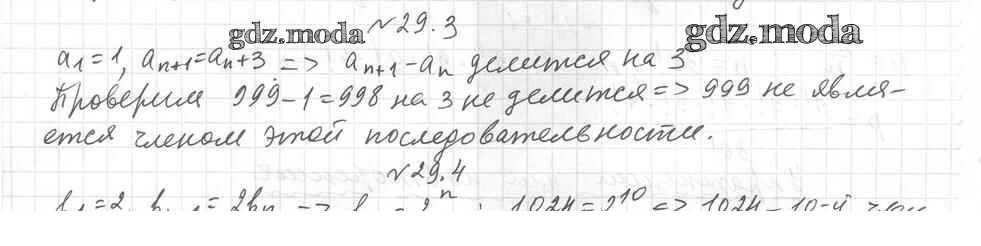 №29.3
gdz.moda gdz.moda
a₁=1, aₙ₊₁=aₙ+3 => aₙ₊₁-aₙ делится на 3
Проверим 999-1=998 на 3 не делится => 999 не явля-
ется членом этой последовательности.
№29.4
=> 1024-10-й